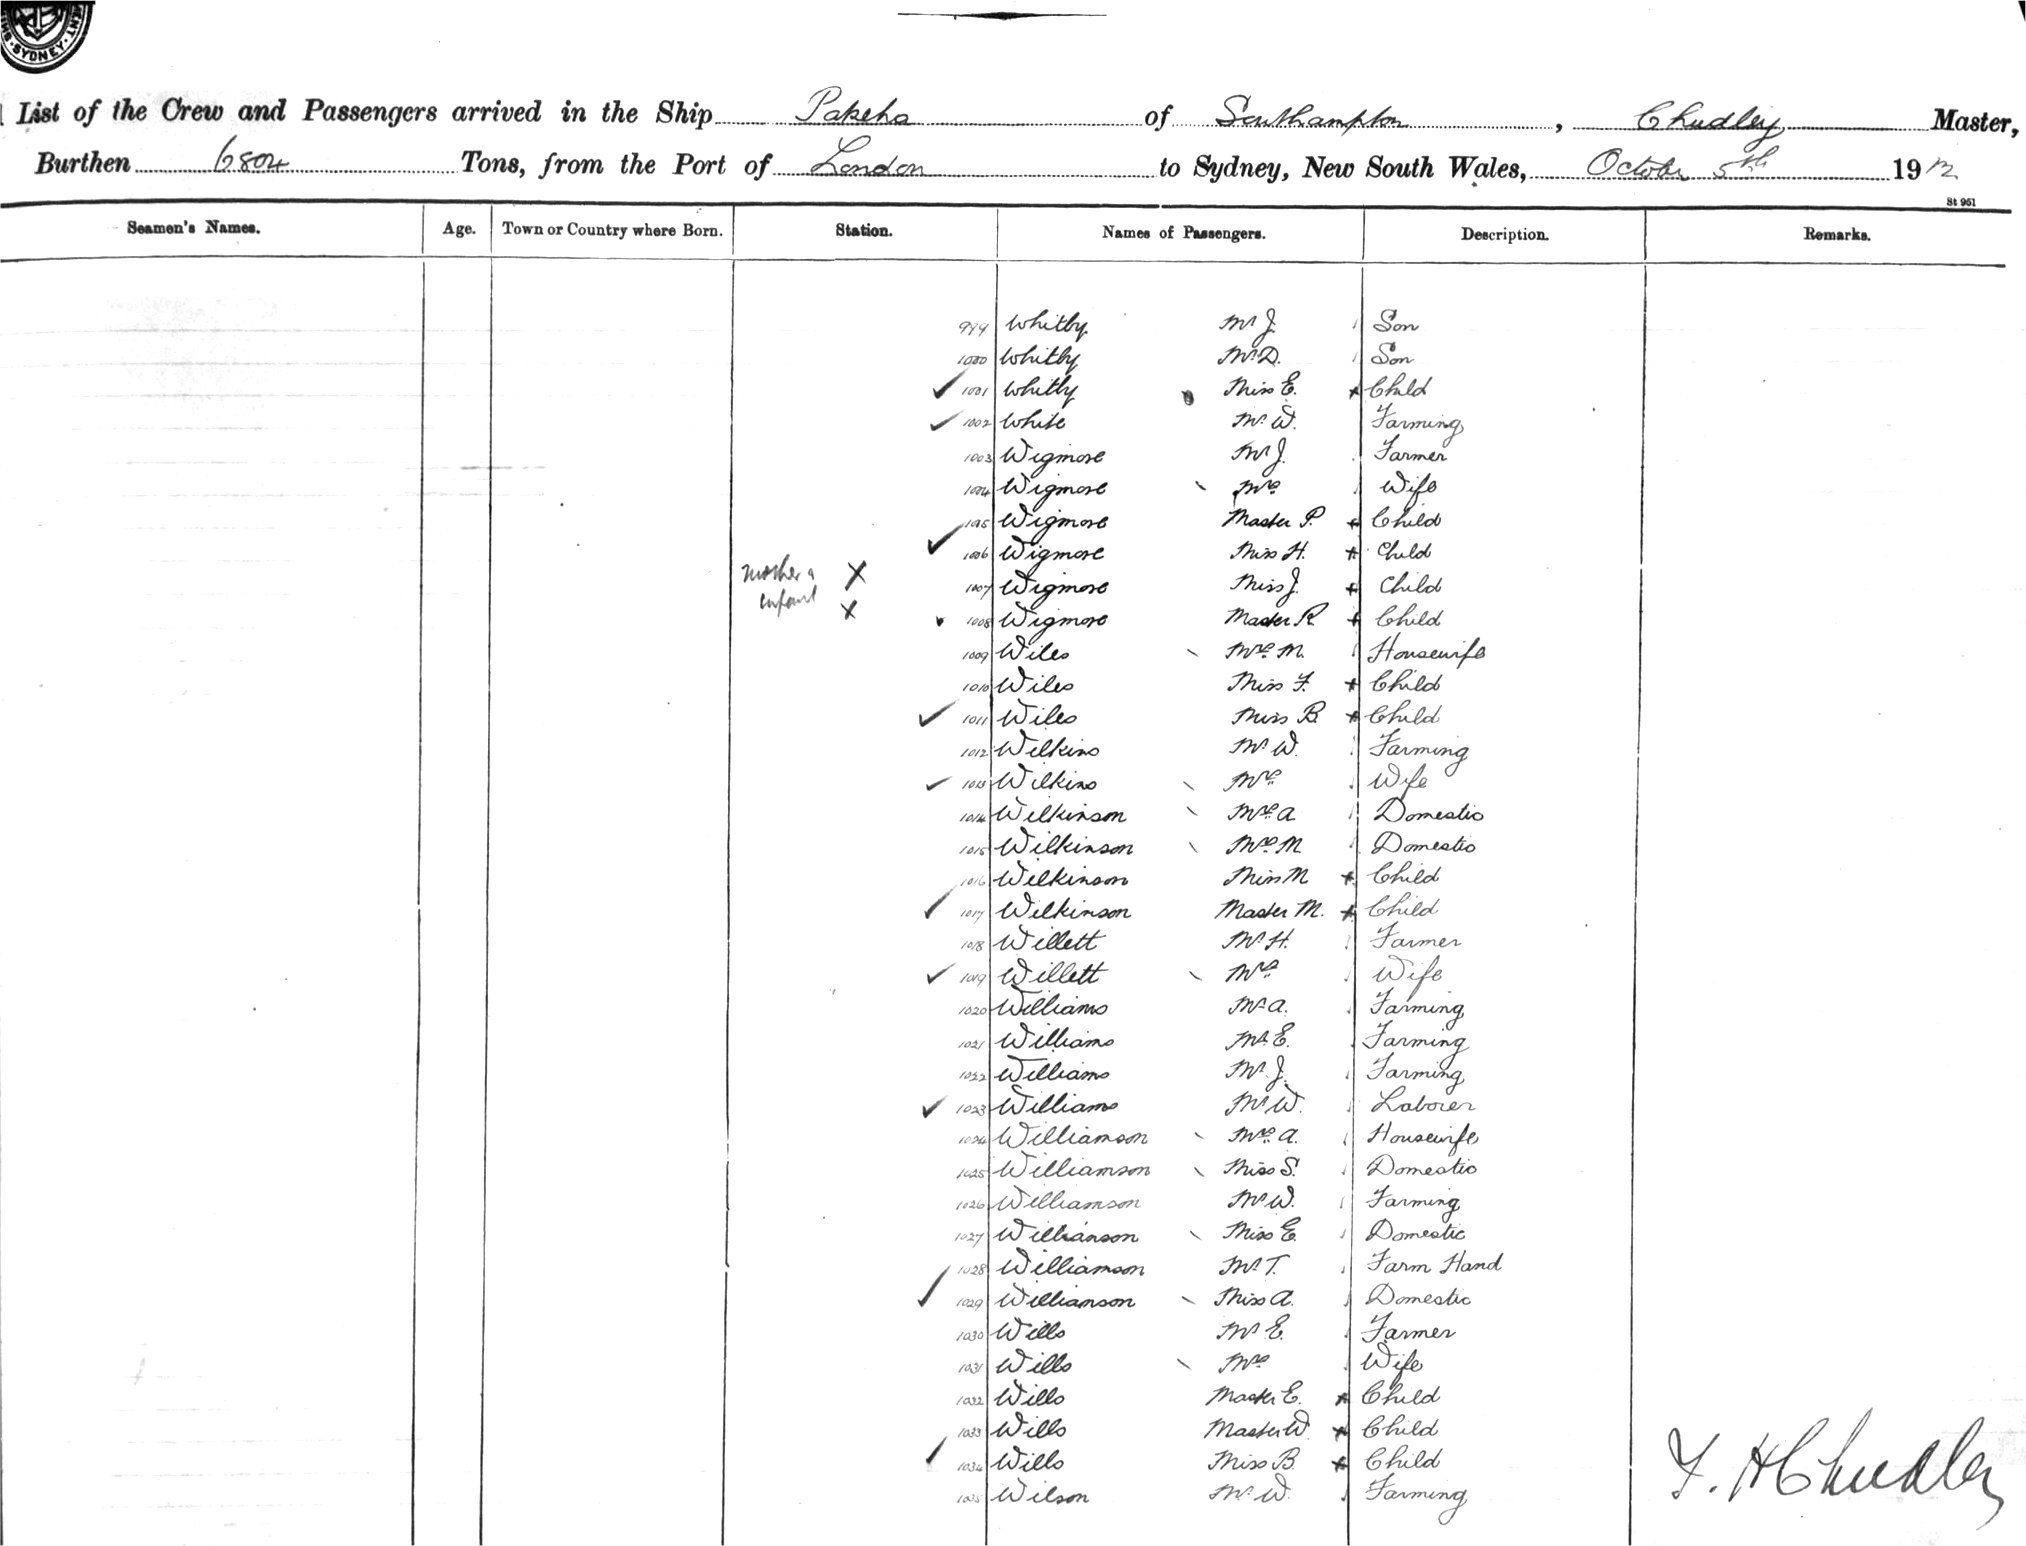 SYDNEY
List of the Crew and Passengers arrived in the Ship Pakeha of Southampton, Chudley Master,
Burthen 6804 Tons, from the Port of London to Sydney, New South Wales, October 5th 1912
St 951
Seamen's Names. Age. Town or Country where Born. Station. Names of Passengers. Description. Remarks.
999 Whitby Mr J. Son
1000 Whitby Mr D. Son
1001 Whitby Miss E. Child
1002 White Mr W. Farming
1003 Wigmore Mr J. Farmer
1004 Wigmore Mrs Wife
1005 Wigmore Master P. Child
1006 Wigmore Miss H. Child
mother & X
1007 Wigmore Miss J. Child
infant X
1008 Wigmore Master R. Child
1009 Wiles Mrs M. Housewife
1010 Wiles Miss F. Child
1011 Wiles Miss B. Child
1012 Wilkins Mr W. Farming
1013 Wilkins Mrs Wife
1014 Wilkinson Mrs A. Domestic
1015 Wilkinson Mrs M Domestic
1016 Wilkinson Miss M Child
1017 Wilkinson Master M. Child
1018 Willett Mr H. Farmer
1019 Willett Mrs Wife
1020 Williams Mr A. Farming
1021 Williams Mr E. Farming
1022 Williams Mr J. Farming
1023 Williams Mr W. Laborer
1024 Williamson Mrs A. Housewife
1025 Williamson Miss S. Domestic
1026 Williamson Mr W. Farming
1027 Williamson Miss E. Domestic
1028 Williamson Mr T. Farm Hand
1029 Williamson Miss A. Domestic
1030 Wills Mr E. Farmer
1031 Wills Mrs Wife
1032 Wills Master E. Child
1033 Wills Master W. Child
1034 Wills Miss B. Child
1035 Wilson Mr W. Farming
F. H Chudley